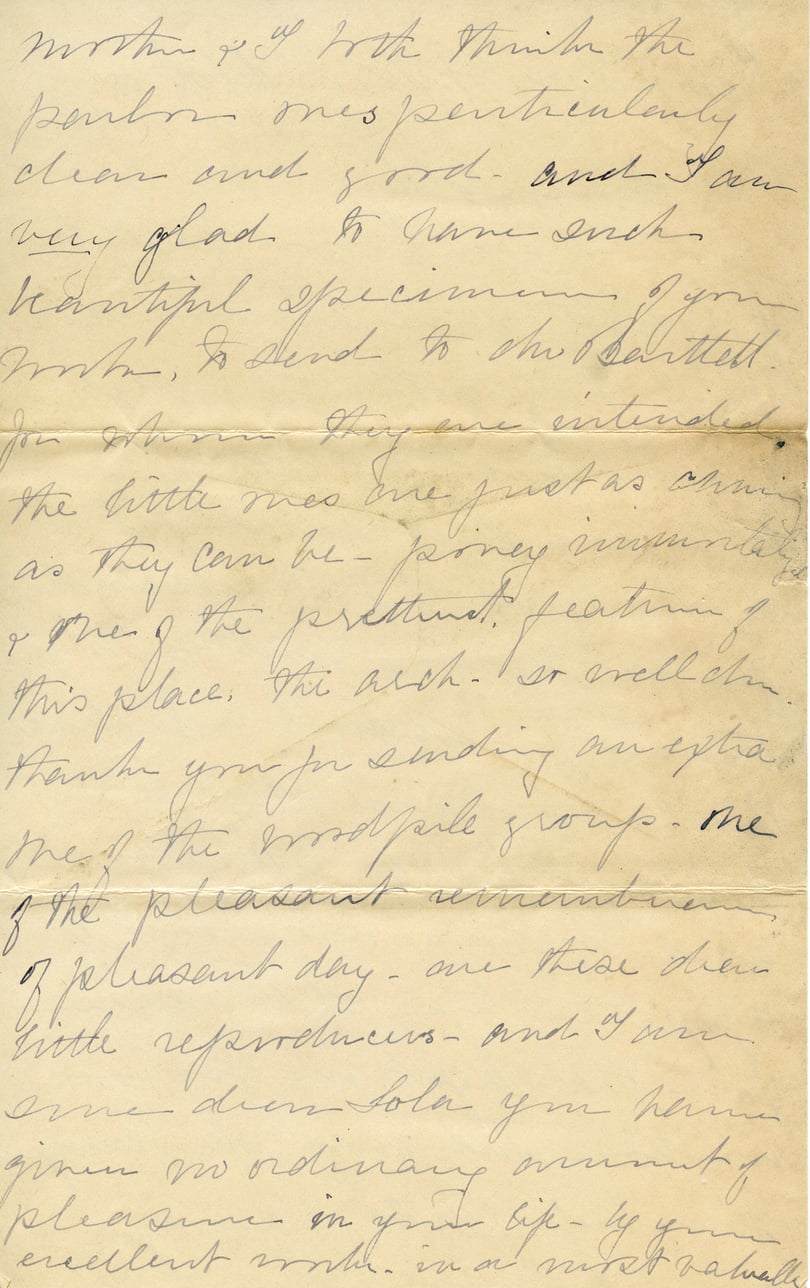 mother & I both think the
parlor ones particularly
clear and good - and I am
very glad to have such
beautiful specimens of your
work, to send to Bartlett.
for whom they are intended.
the little ones are just as cunning
as they can be -
& one of the prettiest features of
this place, the arch - so well done.
thank you for sending an extra
one of the woodpile group - one
of the pleasant remembrances
of pleasant day - are these dear
little reproducers - and I am
sure dear Lola you have
given no ordinary amount of
pleasure in your life - by your
excellent work - in a most valuable